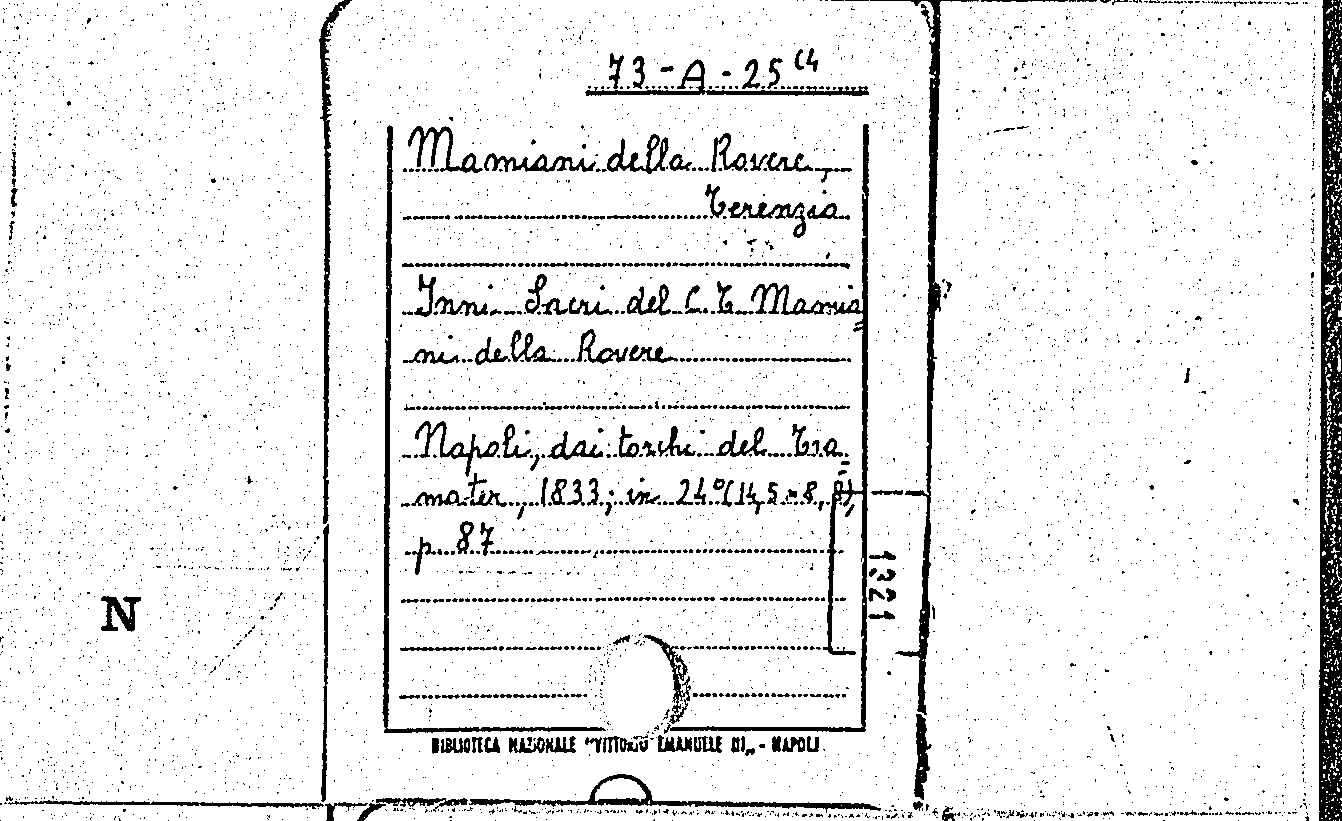 73-A-25 (4
Mamiani della Rovere,
Terenzia
Inni Sacri del C. T. Mamia=
ni della Rovere
Napoli, dai torchi del Tra=
mater, 1833; in 24º(14,5×8,8),
p. 87
1321
N
BIBLIOTECA NAZIONALE "VITTORIO EMANUELE III„ - NAPOLI